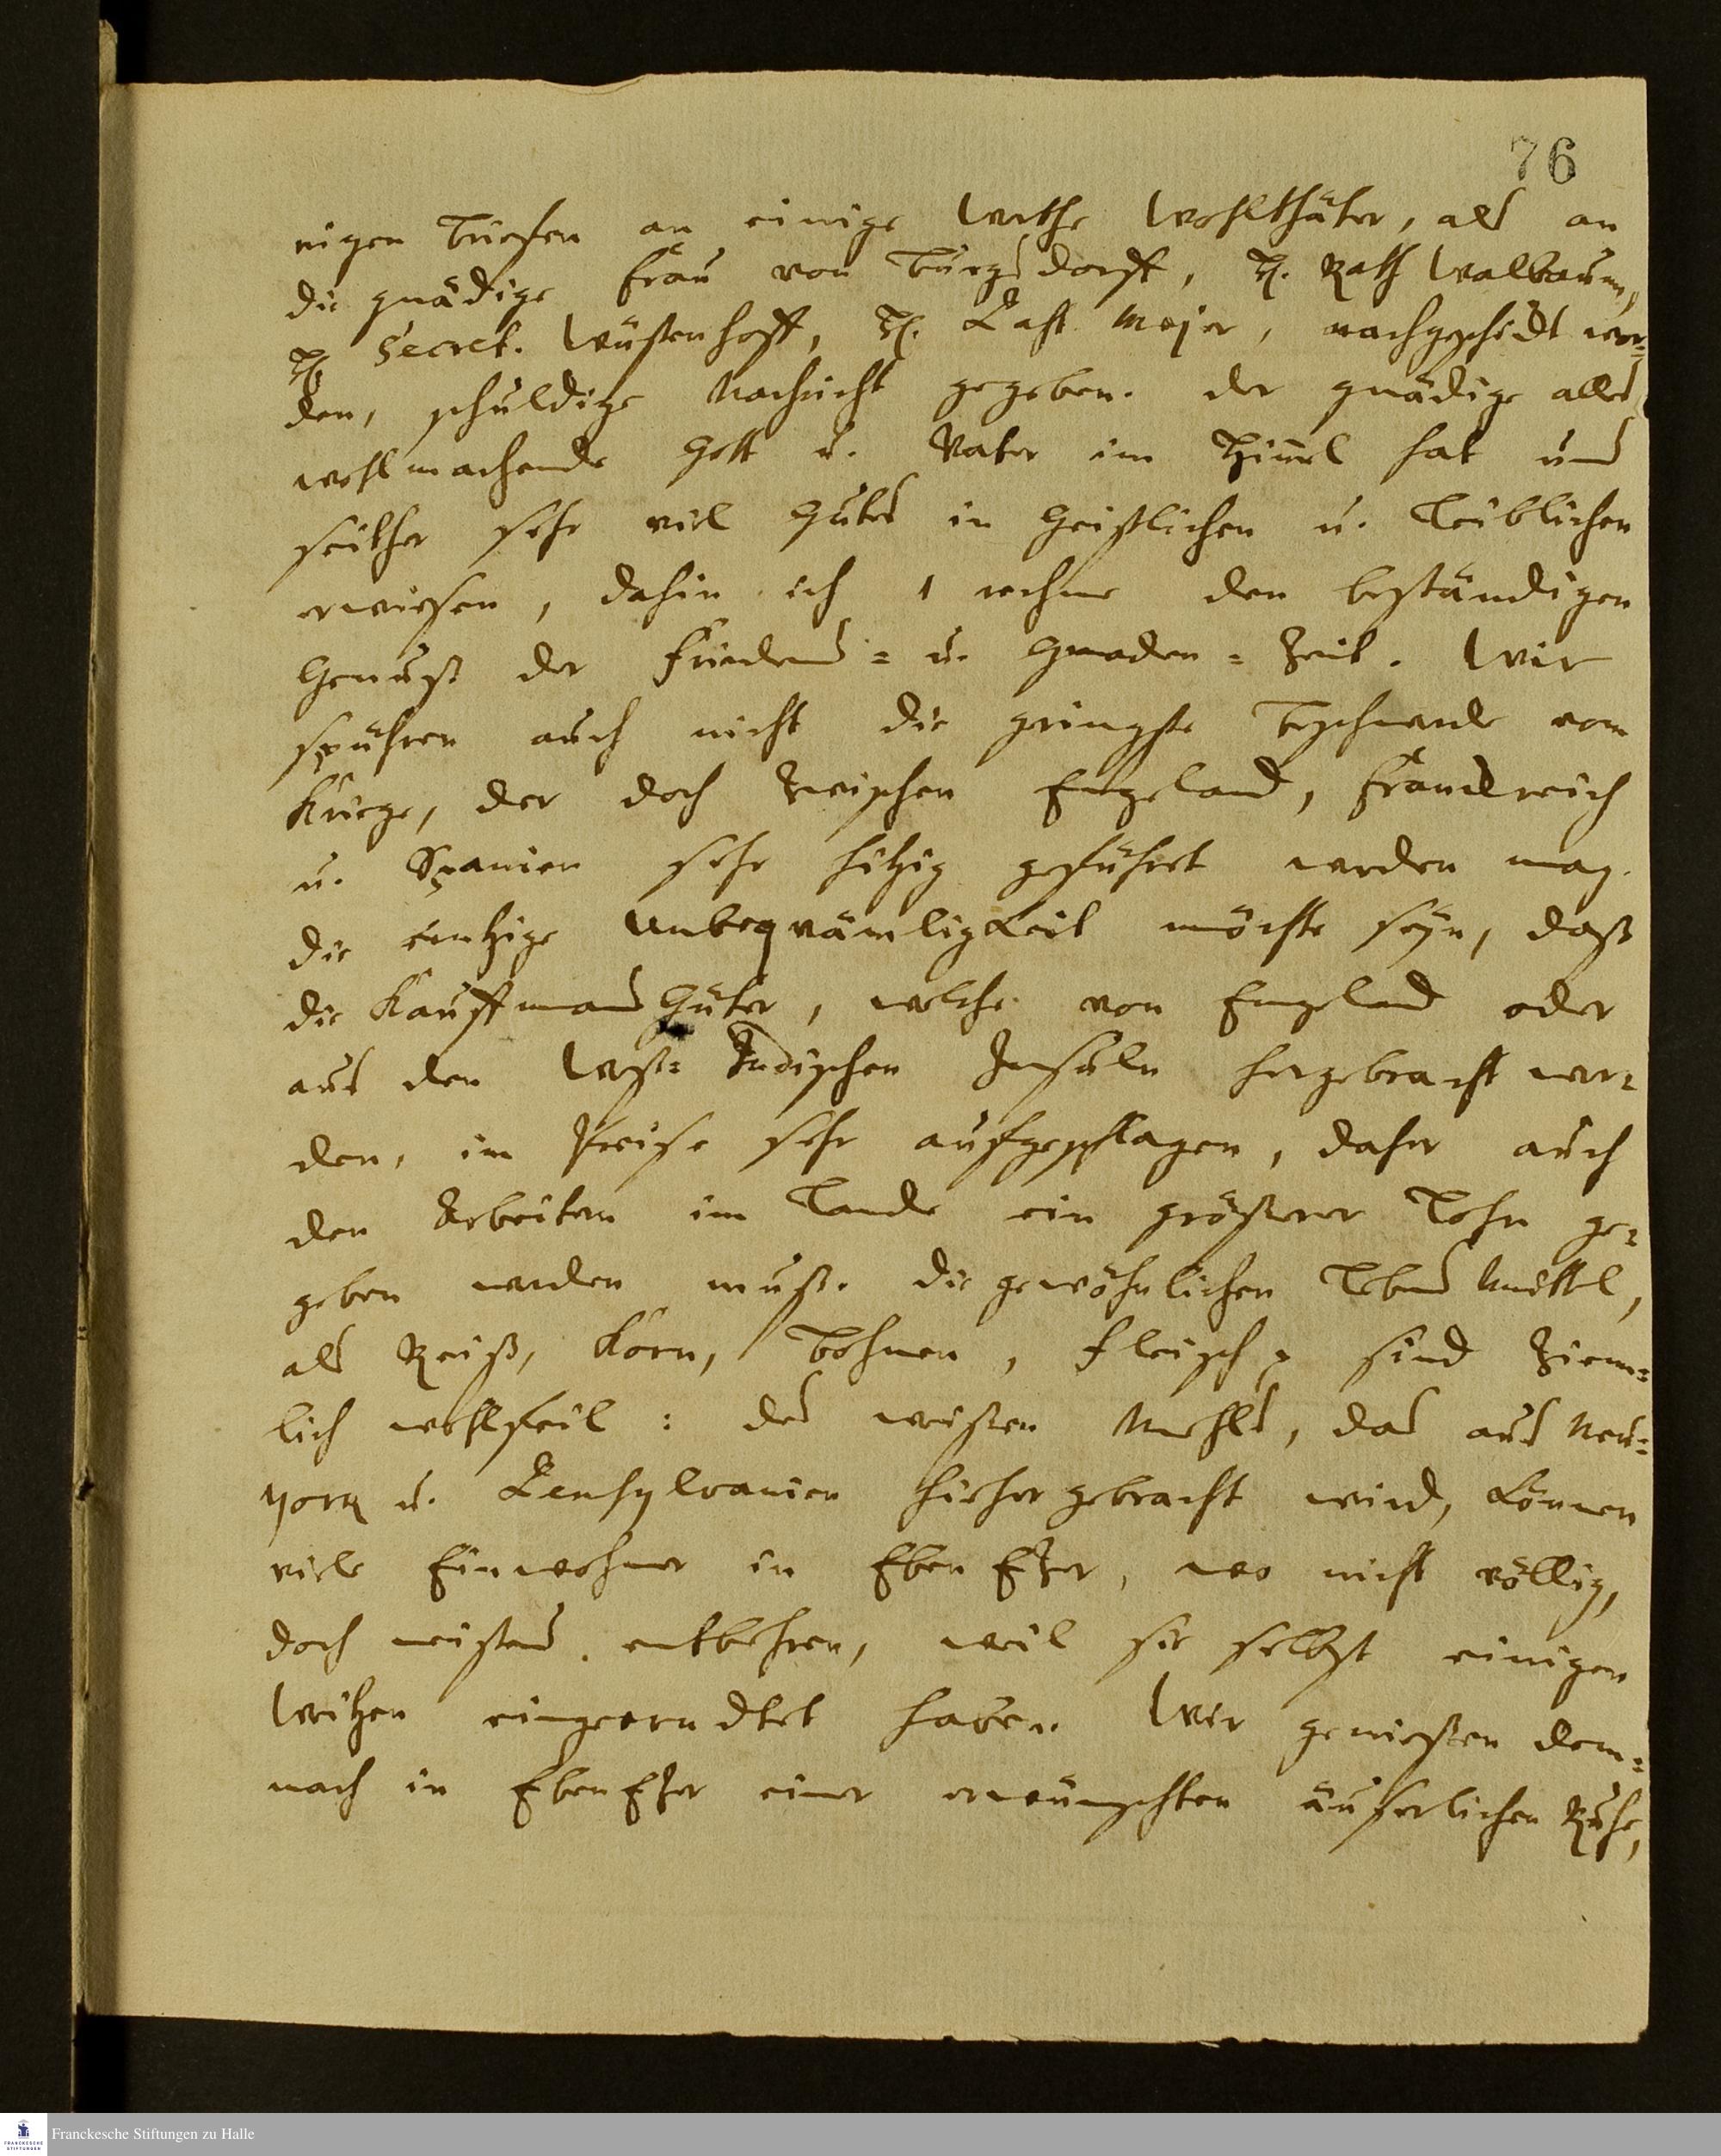 76
nigen Briefen an einige werthe Wohlthäter, als an
die gnädige Frau von Burgsdorff, H. Rath Walbaum,
H. Secret. Wüstenhoff, H. Past. Mejer, nachgeschickt wor=
den, schuldige Nachricht gegeben. Der gnädige alles
wohlmachende Gott u. Vater im Him̃el hat uns
seither sehr viel Gutes in Geistlichen u. Leiblichen
erwiesen, dahin ich rechne den beständigen
Genuß der Friedens= u. Gnaden=Zeit. Wir
spühren auch nicht die geringste Beschwerde vom
Kriege, der doch zwischen Engeland, Franckreich
u. Spanien sehr hitzig geführet werden mag.
Die eintzige Unbeqvämligkeit möchte seyn, daß
die Kauffmans Güter, welche von Engeland oder
aus den West=Indischen Insuln hergebracht wer=
den, im Preise sehr aufgeschlagen, daher auch
den Arbeitern im Lande ein größerer Lohn ge=
geben werden muß. Die gewöhnlichen Lebens Mittel,
als Reiß, Korn, Bohnen, Fleisch p sind ziem=
lich wohlfeil: des weissen Mehls, das aus Neu=
york u. Pensylvanien hieher gebracht wird, können
viele Einwohner in Eben Ezer, wo nicht völlig,
doch meistens entbehren, weil sie selbst einigen
Weitzen eingeerndtet haben. Wir geniessen dem=
nach in EbenEzer einer erwünschten äuserlichen Ruhe,
Franckesche Stiftungen zu Halle